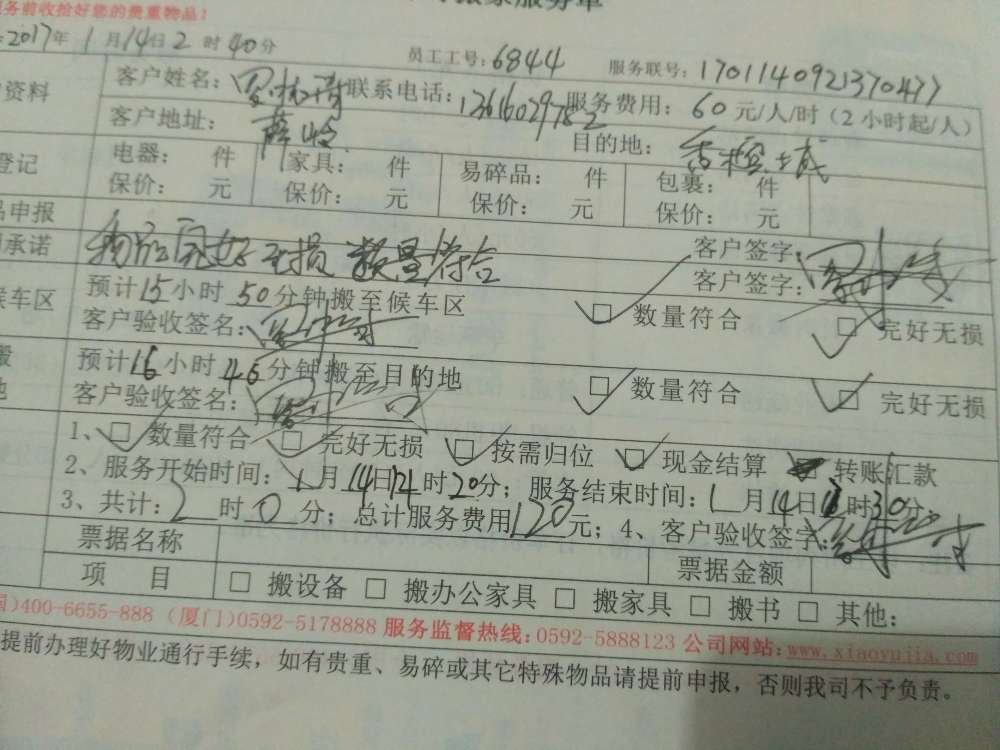 服务前收拾好您的贵重物品！
2017年1月14日2时40分 员工工号：6844 服务联号：170114092137047
资料 客户姓名： 联系电话： 服务费用：60元/人/时（2小时起/人）
客户地址：薛岭 目的地：
登记 电器： 件 家具： 件 易碎品： 件 包裹： 件
保价： 元 保价： 元 保价： 元 保价： 元
品申报 客户签字：
承诺 物品完好无损 数量符合 客户签字：
候车区 预计15小时50分钟搬至候车区 数量符合 完好无损
客户验收签名：
搬 预计16小时45分钟搬至目的地 数量符合 完好无损
地 客户验收签名：
1、数量符合 完好无损 按需归位 现金结算 转账汇款
2、服务开始时间：1月14日 时20分；服务结束时间：1月14日 时30分
3、共计：2时0分；总计服务费用120元；4、客户验收签字：
票据名称 票据金额
项 目 搬设备 搬办公家具 搬家具 搬书 其他：
)400-6655-888（厦门)0592-5178888 服务监督热线：0592-5888123 公司网站：www.xiaoyujia.com
提前办理好物业通行手续，如有贵重、易碎或其它特殊物品请提前申报，否则我司不予负责。